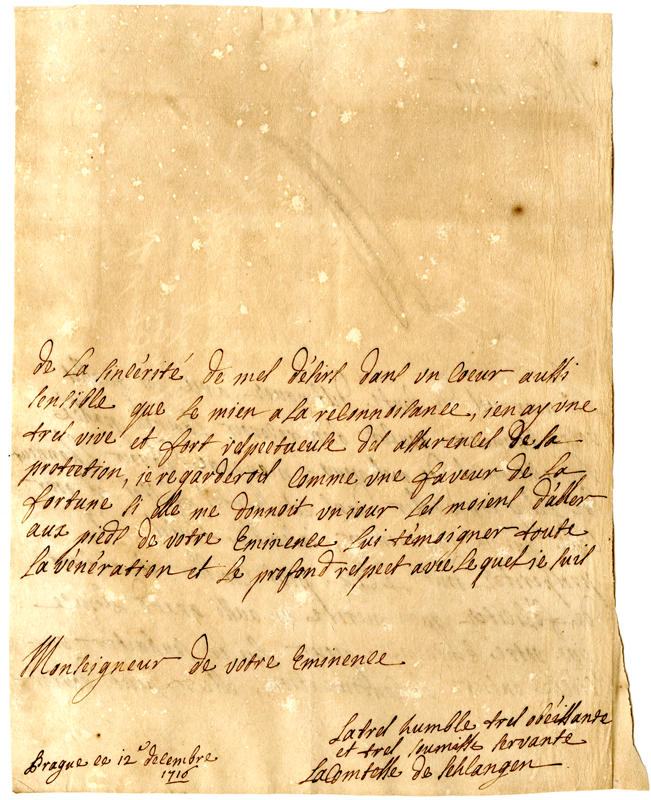 de La sincérité de mes désirs dans vn Coeur aussi
sensible que le mien a la reconnoissance, ien ay vne
tres vive et fort respectueuse des assurences de sa
protection, ie regarderois Comme vne faveur de La
fortune si Elle me donnoit vn iour Les moiens d'aller
aux pieds de votre Eminence Lui témoigner toute
La vénération et Le profond respect avec Le quel je suis
Monseigneur de votre Eminence
La tres humble tres obéissante
et tres soumisse servante
La Comtesse de Schlangen
Prague ce 12e decembre
1716